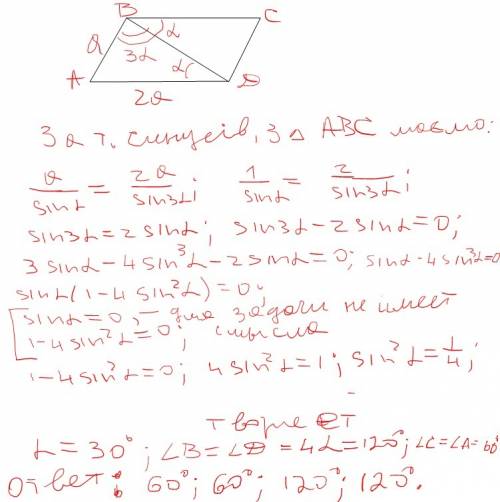 B
α
C
a
3α
α
A
D
2a
За т. синусів, з △ ABC маємо:
a/sinα = 2a/sin3α; 1/sinα = 2/sin3α;
sin3α = 2sinα; sin3α - 2sinα = 0;
3sinα - 4sin³α - 2sinα = 0; sinα - 4sin³α = 0
sinα(1 - 4sin²α) = 0.
[sinα = 0, — для задачи не имеет
1 - 4sin²α = 0; смысла
1 - 4sin²α = 0; 4sin²α = 1; sin²α = 1/4;
α = 30°; ∠B = ∠D = 4α = 120°; ∠C = ∠A = 60°
Ответ: 60°; 60°; 120°; 120°.